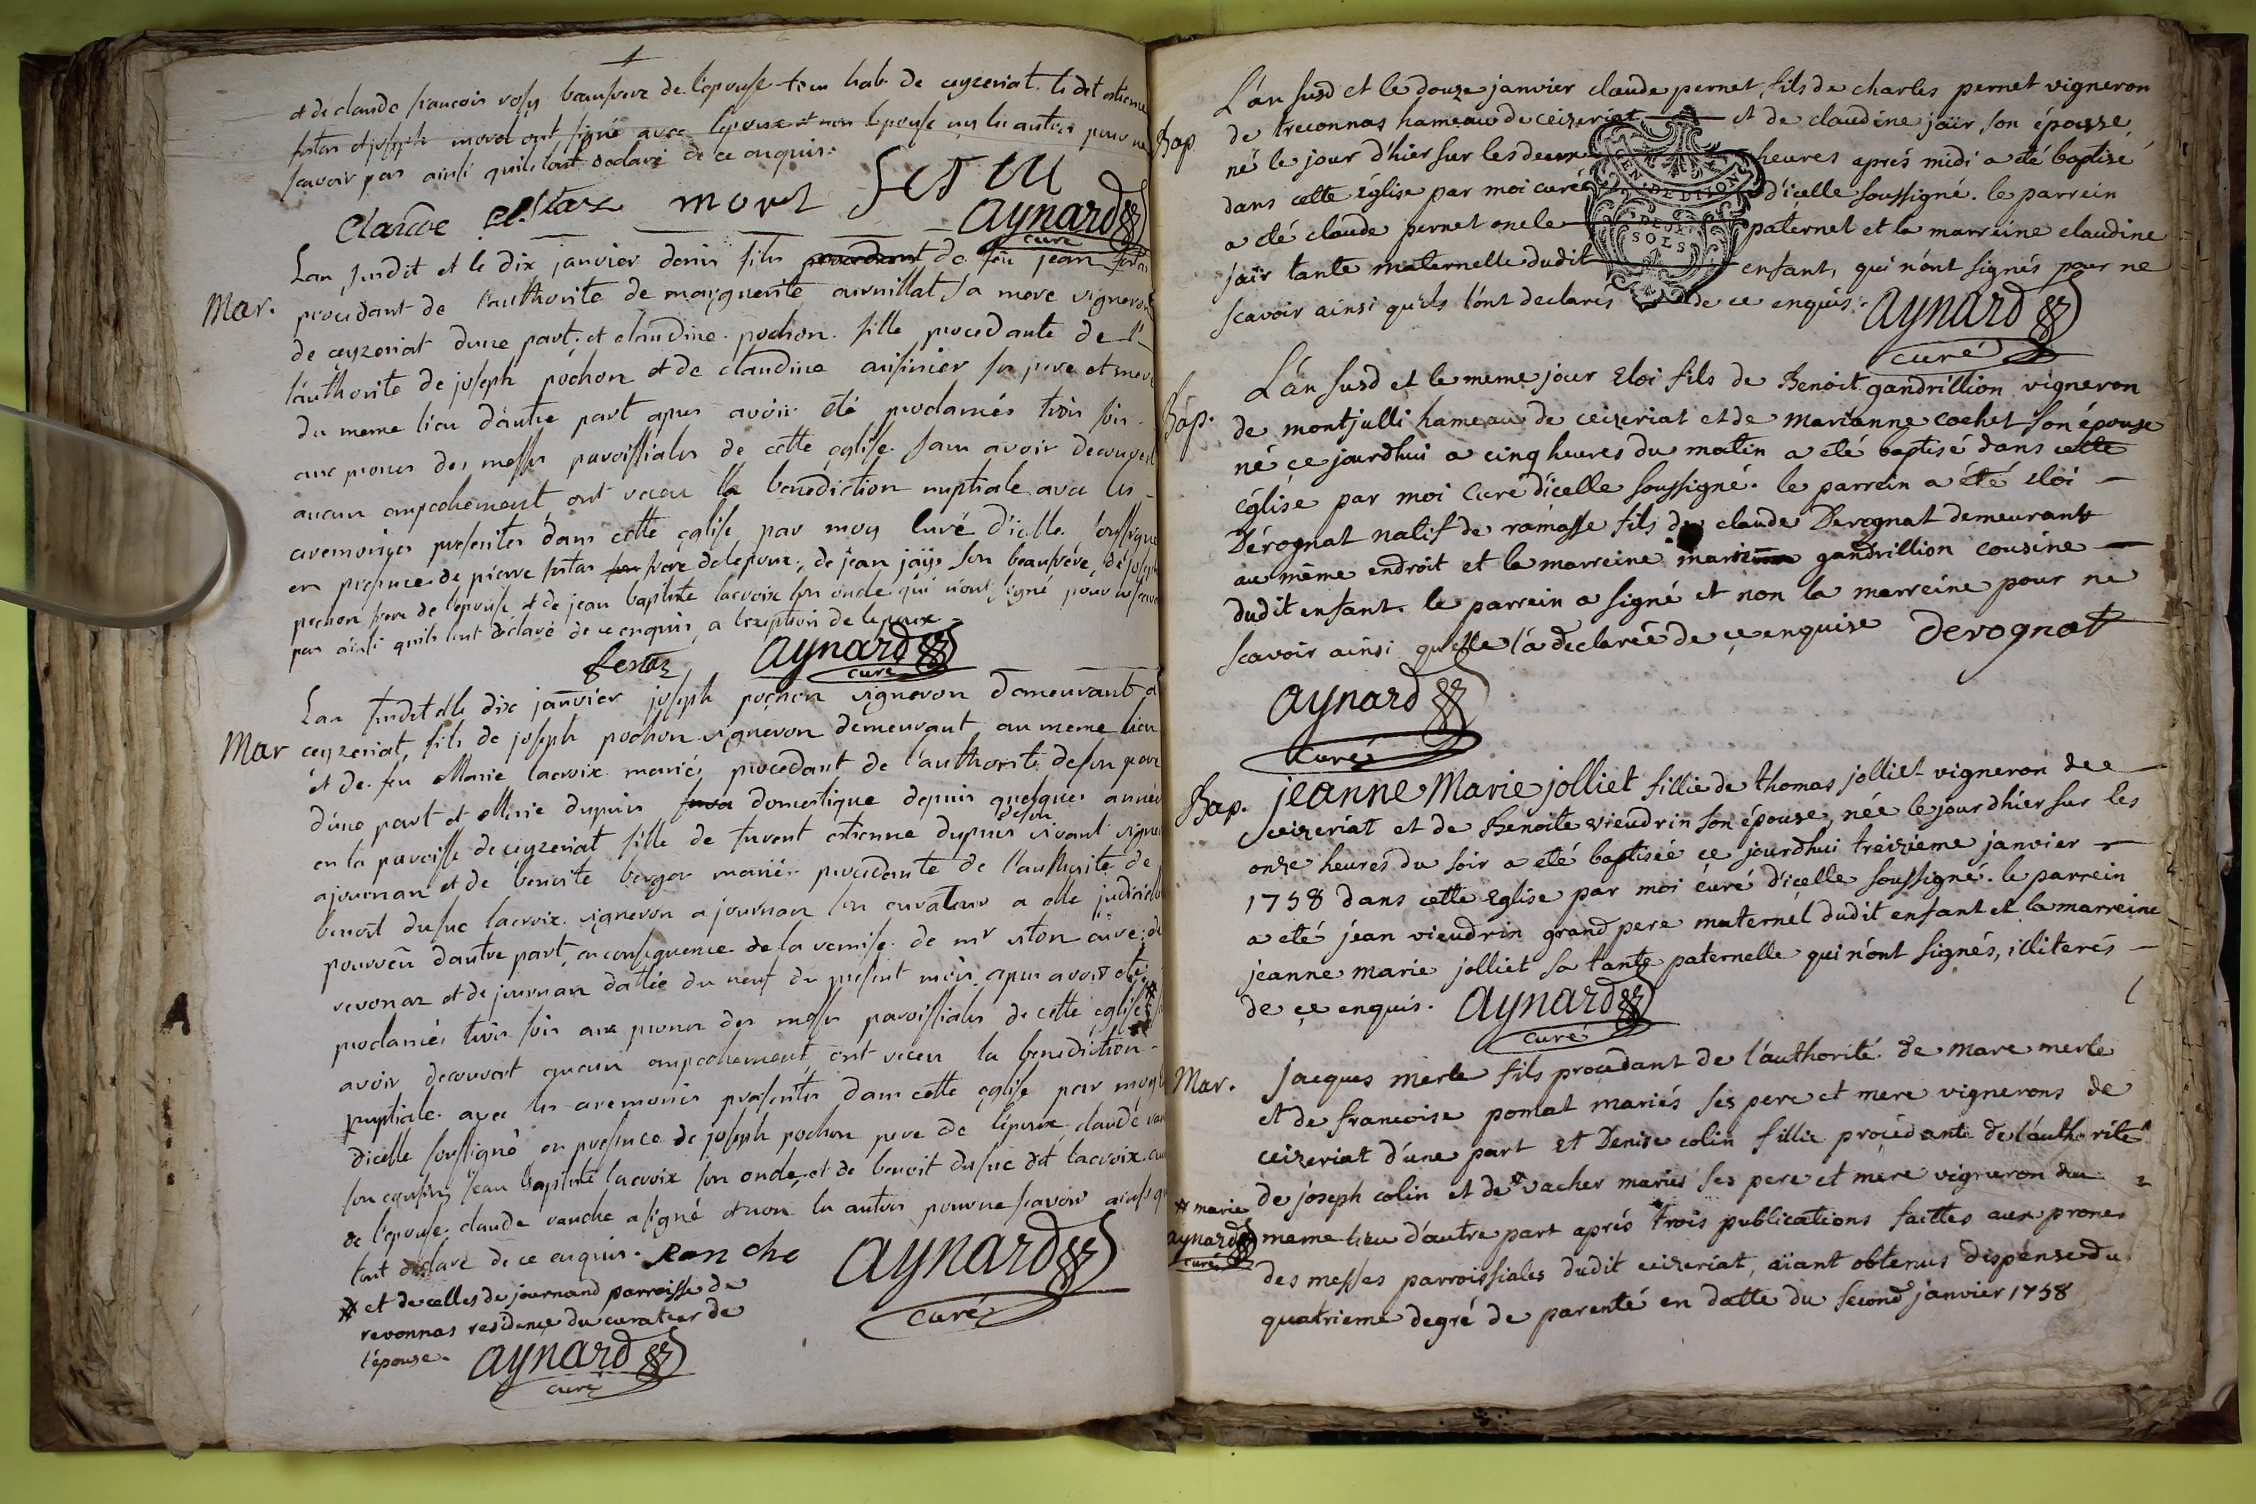 et de claude francois rosy beaufrere de lepouse tous hab. de ceyzeriat. le dit estienne
festas et joseph morel ont signé avec lepoux et non lepouse ny les autres pour ne
scavoir pas ainsi quils l'ont déclaré de ce enquis.
Claude festaz morel
aynard
curé
Mar.
Lan susdit et le dix janvier denis fils de feu jean festas
procedant de l'authorité de marguerite sa mere vigneron
de ceyzeriat dune part, et claudine pochon fille procedante de l'
l'authorité de joseph pochon et de claudine cuisinier ses pere et mere
du meme lieu dautre part apres avoir été proclamés trois fois
aux prones des messes paroissiales de cette eglise sans avoir decouvert
aucun empechement, ont receu la benediction nuptiale avec les
ceremonies presentes dans cette eglise par moy curé d'icelle soussigné
en presence de pierre festas frere de lepoux, de jean jaÿr son beaufrere, de joseph
pochon frere de lepouse et de jean baptiste lacroix son oncle qui n'ont signé pour ne scavoir
pas ainsi quils l'ont déclaré de ce enquis, a lexeption de lepoux
festaz aynard
curé
Mar
Lan susdit et le dix janvier joseph pochon vigneron demeurant a
ceyzeriat, fils de joseph pochon vigneron demeurant au meme lieu
et de feu Marie lacroix mariés, procedant de l'authorité de son pere
d'une part et Marie dupuis domestique depuis quelques années
en la paroisse de ceyzeriat fille de furent estienne dupuis de son vivant vigneron
a journan et de benoite berger mariés procedante de l'authorité de
benoit dufuc lacroix vigneron a journan son curateur a elle judiciellement
pourveu dautre part, en consequence de la remise de mr curé de
revonaz et de journan dattée du neuf du present mois apres avoir été
proclamés trois fois aux prones des messes paroissiales de cette eglise
avoir decouvert aucun empechement, ont receu la benediction
nuptiale avec les ceremonies presentes dans cette eglise par moy
dicelle soussigné en presence de joseph pochon pere de lepoux claude
son cousin, jean Baptiste lacroix son oncle, et de benoit dufuc dit lacroix
de l'epouse. claude ranche a signé et non les autres pour ne scavoir ainsi
l'ont déclaré de ce enquis. Ran che aynard
curé
# et de celles de journand parroisse de
revonnas residence du curateur de
l'épouse. aynard
curé
Bap
L'án susd et le douze janvier claude pernet, fils de charles pernet vigneron
de treconnas hameau de ceizeriat et de claudine jaïr son épouse
né le jour d'hier sur les deux heures aprés midi a été baptisé
dans cette Eglise par moi curé d'icelle soussigné. le parrein
a été claude pernet oncle paternel et la marreine claudine
jaïr tante maternelle dudit enfant, qui n'ont signés pour ne
scavoir ainsi qu'ils l'ont declarés de ce enquis. aynard
curé
GEN. DE DIJON
DEUX
SOLS
Báp.
L'án susd et le meme jour Eloi fils de Benoit gandrillion vigneron
de montjulli hameau de ceizeriat et de Marianne cochet son épouse
né ce jourdhui a cinq heures du matin a été baptisé dans cette
Eglise par moi Curé d'icelle soussigné. le parrein a été Eloi
Dérognat natif de ramasse fils de claude Derognat demeurant
au même endroit et la marreine marie gandrillion cousine
dudit enfant. le parrein a signé et non la marreine pour ne
scavoir ainsi qu'elle l'a declarée de ce enquise derognat
aynard
curé
Bap.
jeanne Marie jolliet fillie de thomas jolliet vigneron de
ceizeriat et de Benoite vieudrin son épouse, née le jour d'hier sur les
onze heures du soir a été baptisée ce jourdhui treizieme janvier
1758 dans cette Eglise par moi curé d'icelle soussigné. le parrein
a été jean vieudrin grand pere maternel dudit enfant et la marreine
jeanne marie jolliet sa tante paternelle qui n'ont signés, illiterés
de ce enquis. aynard
curé
Mar.
jacques merle fils procedant de l'authorité de marc merle
et de francoise pomat mariés ses pere et mere vignerons de
ceizeriat d'une part et Denise colin fillie procedante de l'authorité
de joseph colin et de # vacher mariés ses pere et mere vigneron du
# marie
aynard
curé
meme lieu d'autre part aprés trois publications faittes aux prones
des messes parroissiales dudit ceizeriat, aiant obtenus dispense du
quatrieme degré de parenté en datte du second janvier 1758